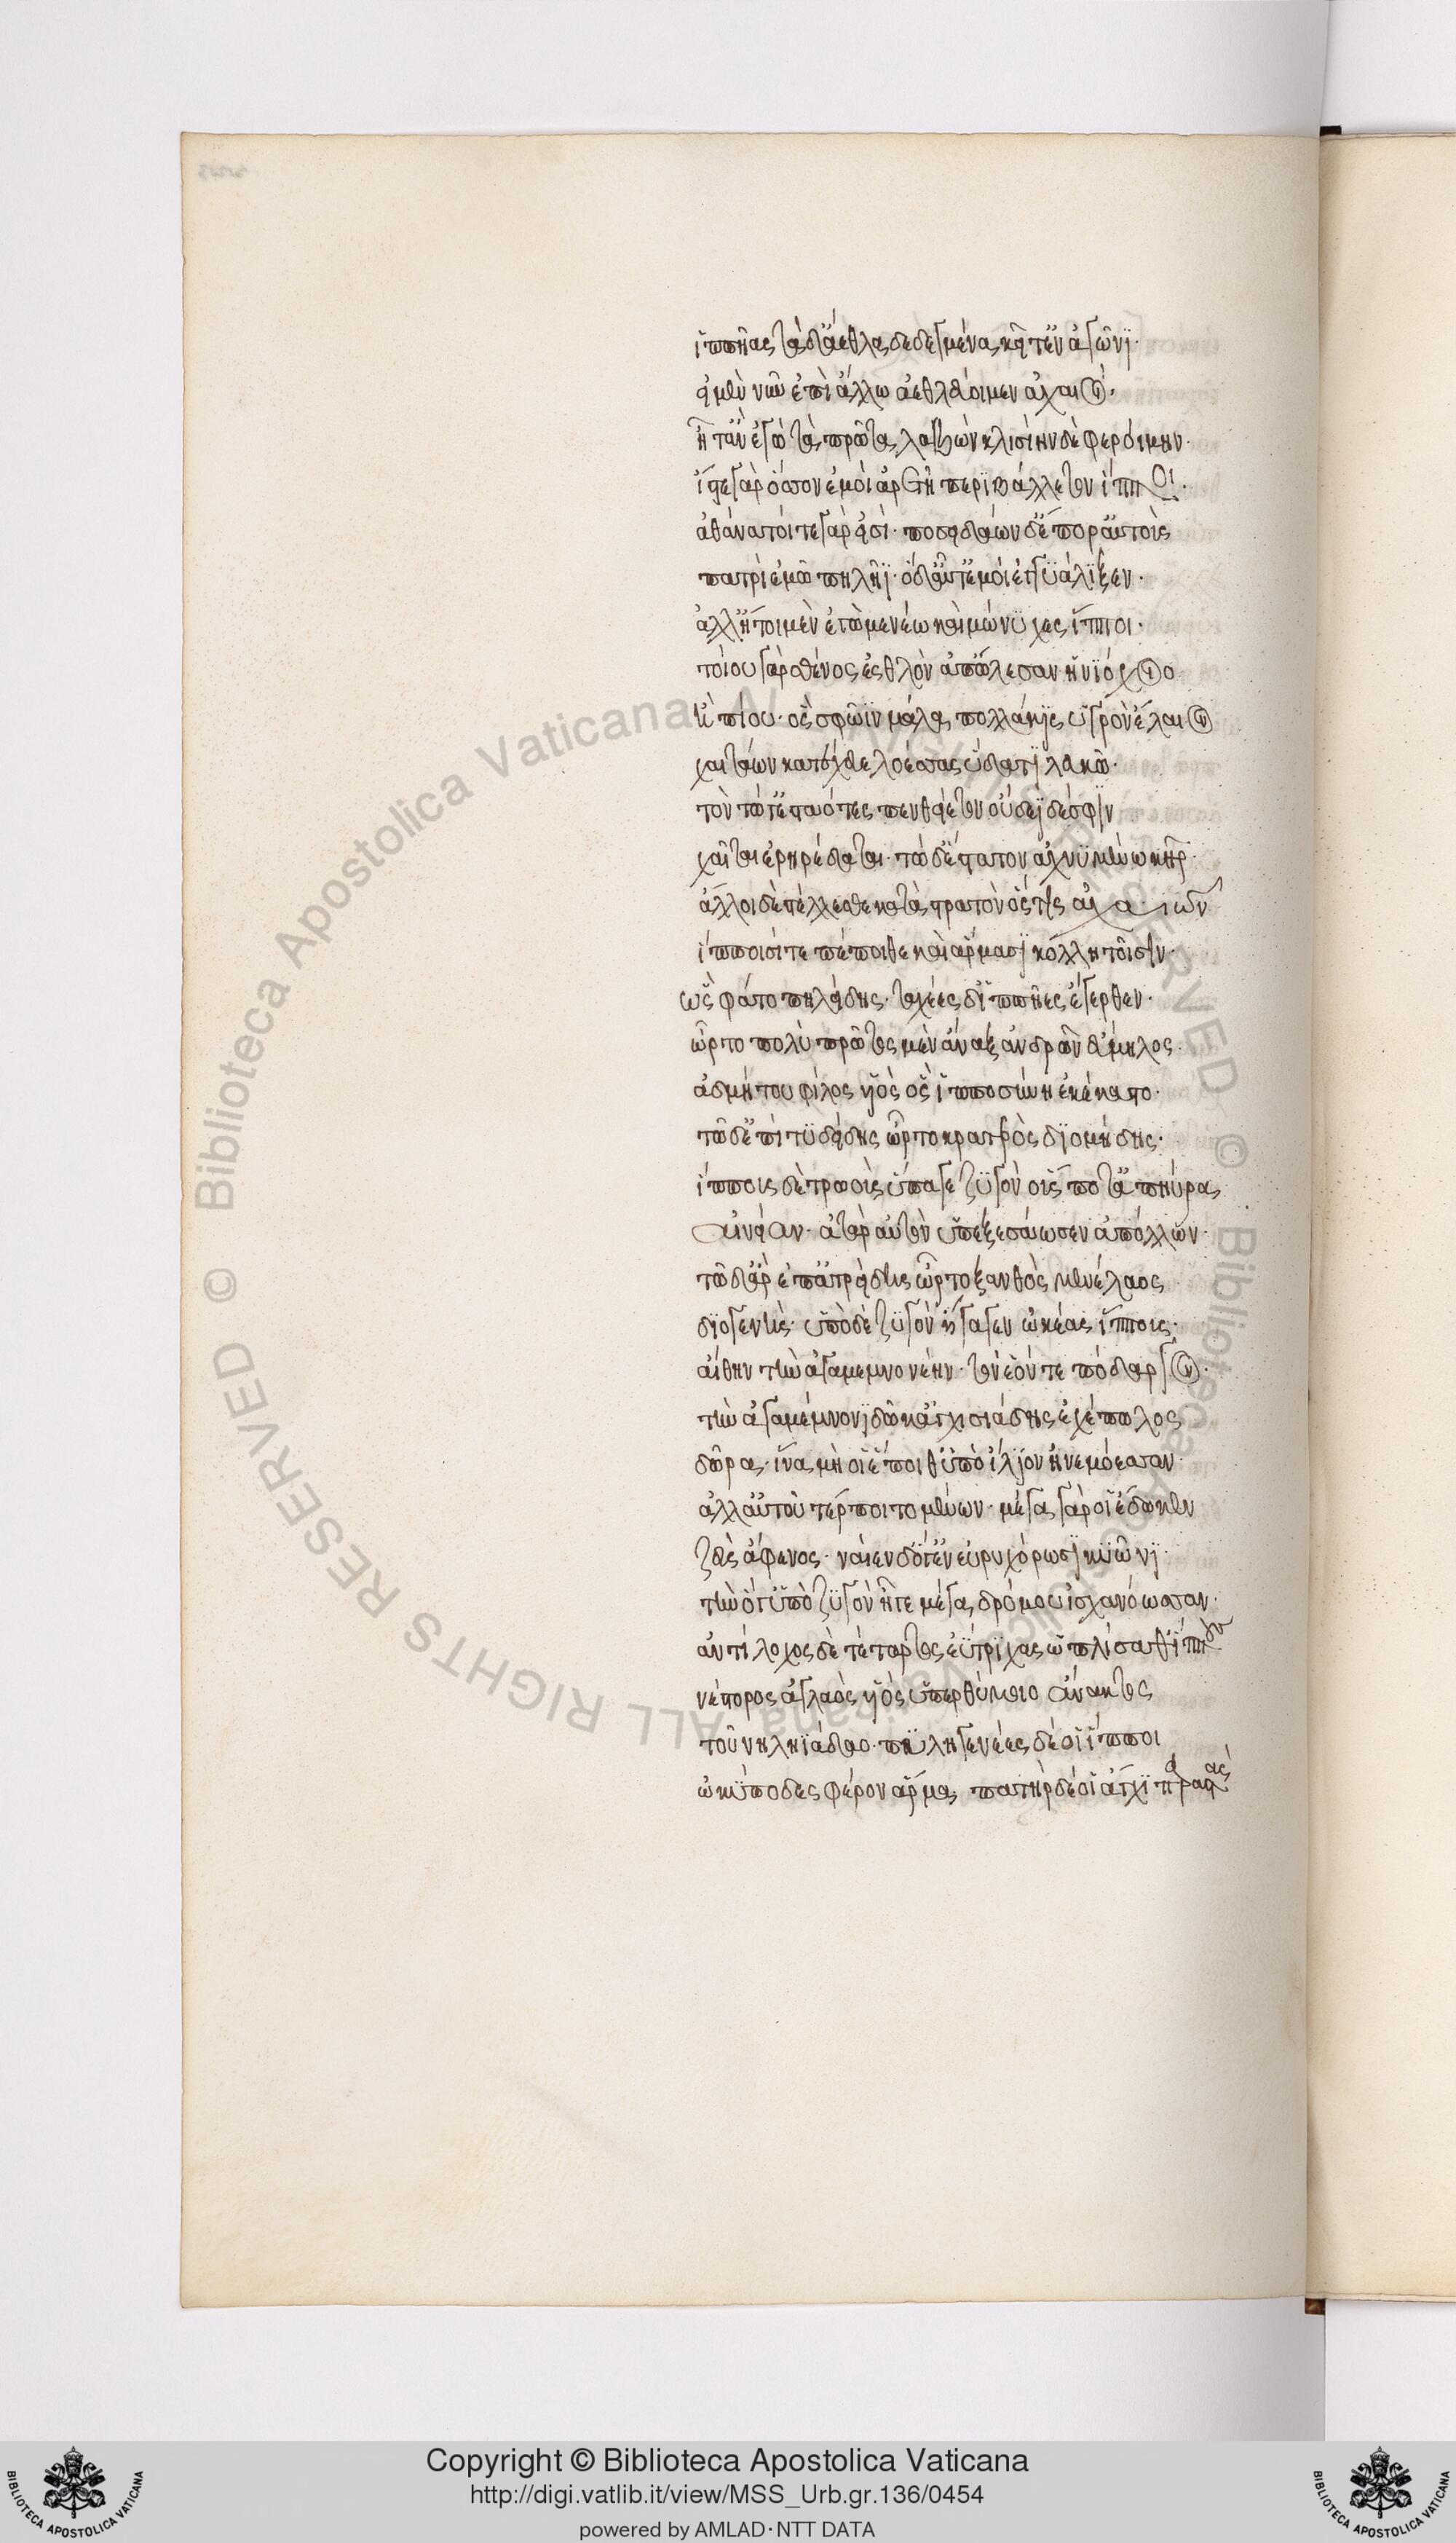 ἱππῆας τάδ' ἄεθλα δεδεγμένα κεῖτ' ἐν ἀγῶνϊ·
εἰ μὲν νῦν ἐπὶ ἄλλω ἀεθλεύοιμεν ἀχαιοί·
ἦ τ' ἂν ἐγὼ τὰ πρῶτα λαβὼν κλισίην δὲ φεροίμην·
ἴστε γὰρ ὅσσον ἐμοὶ ἀρετῆ περϊβάλλετον ἵπποι·
ἀθάνατοί τε γάρ εἰσὶ· ποσειδάων δὲ πόρ' αὐτοὺς
πατρὶ ἐμῶ πηλῆϊ· ὁ δ' αὖτ' ἐμοὶ ἐγγϋάλϊξεν·
ἀλλ' ἤτοι μὲν ἐγὼ μενέω καὶ μώνϋχες ἵπποι·
τοίου γὰρ σθένος ἐσθλὸν ἀπώλεσαν ἡνϊόχοιο
ἠπίου· ὅς σφῶϊν μάλα πολλάκϊς ὑγρὸν ἔλαιον
χαιτάων κατέχευε λοέσσας ὕδατϊ λευκῶ·
τὸν τώ γ' ἑσταότες πενθείετον οὔδεϊ δέ σφϊν
χαῖται ἐρηρέδαται· τὼ δ' ἕστατον ἀχνϋμένω κῆρ·
ἄλλοι δὲ στέλλεσθε κατὰ στρατὸν ὅς τϊς ἀχαιῶν
ἵπποισί τε πέποιθε καὶ ἅρμασϊ κολλητοῖσϊν·
ὣς φάτο πηλείδης· ταχέες δ' ἱππῆες ἔγερθεν·
ὦρτο πολὺ πρῶτος μὲν ἄναξ ἀνδρῶν εὔμηλος
ἀδμήτου φίλος ϋἱὸς ὃς ἱπποσύνη ἐκέκαστο·
τῶ δ' ἐπὶ τϋδείδης ὦρτο κρατερὸς δϊομήδης·
ἵππους δὲ τρωοὺς ὕπαγε ζϋγὸν οὕς ποτ' ἀπηύρα
αἰνείαν· ἀτὰρ αὐτὸν ὑπεξεσάωσεν ἀπόλλων·
τῶ δ' ἄρ' ἐπ' ἀτρείδης ὦρτο ξανθὸς μενέλαος
δϊογενὴς· ὑπὸ δὲ ζϋγὸν ἤγαγεν ὠκέας ἵππους·
αἴθην τὴν ἀγαμεμνονέην· τὸν ἑόν τε πόδαργον·
τὴν ἀγαμέμνονϊ δῶκ' ἀγχισιάδης ἐχέπωλος
δῶρα· ἵνα μή οἱ ἕποιθ' ὑπὸ ἴλϊον ἠνεμόεσσαν
ἀλλ' αὐτοῦ τέρποιτο μένων· μέγα γάρ οἱ ἔδωκεν
ζεὺς ἄφενος· ναῖεν δ' ὅ γ' ἐν εὐρυχόρωσϊ κϋῶνϊ·
τὴν ὅ γ' ὑπὸ ζϋγὸν ἦγε μέγα δρόμου ἰσχανόωσαν·
ἀντίλοχος δὲ τέταρτος ἐΰτρϊχας ὡπλίσαθ' ἵππους
νέστορος ἀγλαὸς ϋἱὸς ὑπερθύμοιο ἄνακτος
τοῦ νηληϊάδαο· πϋληγενέες δέ οἱ ἵπποι
ὠκύποδες φέρον ἅρμα πατὴρ δέ οἱ ἄγχϊ παραστὰς